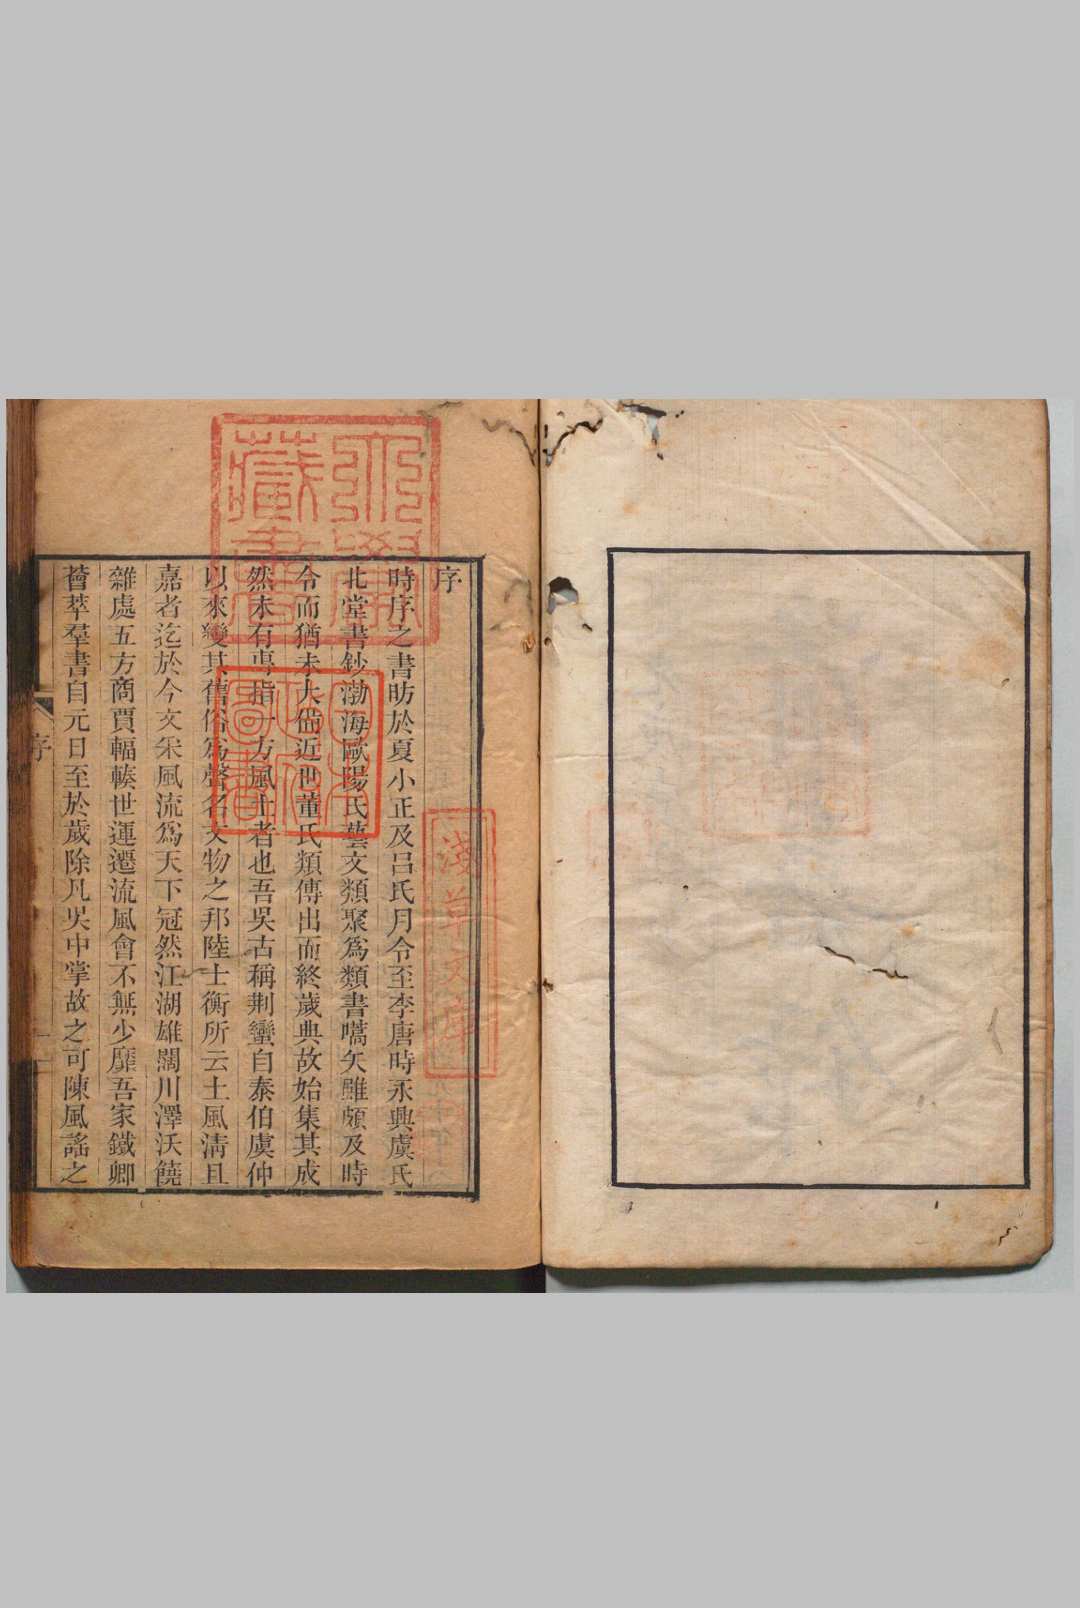 序
時序之書昉於夏小正及呂氏月令至李唐時永興虞氏
北堂書鈔渤海歐陽氏藝文類聚爲類書嚆矢雖頗及時
令而猶未大備近世董氏類傳出而終歲典故始集其成
然未有専指一方風土者也吾吳古稱荆蠻自泰伯虞仲
以來變其舊俗爲聲名文物之邦陸士衡所云土風淸且
嘉者迄於今文采風流爲天下冠然江湖雄闊川澤沃饒
雜處五方商賈輻輳世運遷流風會不無少靡吾家鐵卿
薈萃羣書自元日至於歲除凡吳中掌故之可陳風謠之
序
一
淺草文庫
藏書